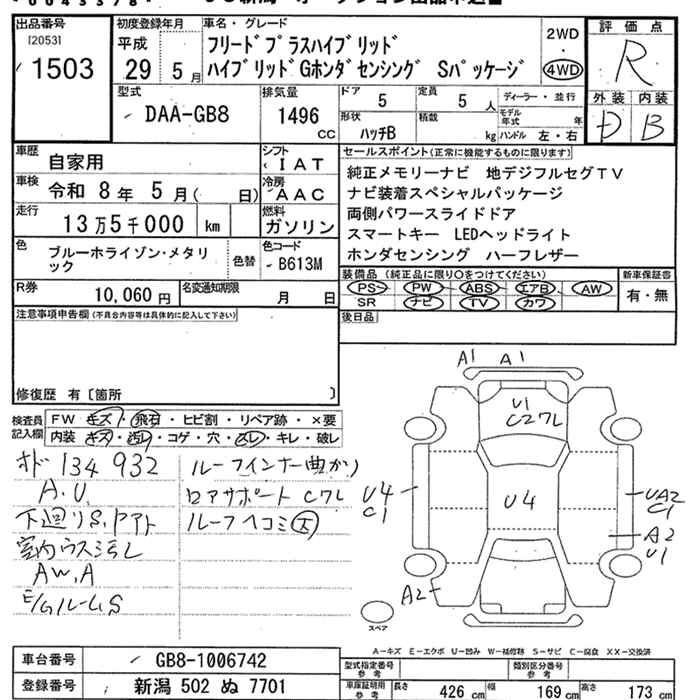 出品番号
[2053]
1503
初度登録年月
平成
29 5月
車名・グレード
フリードプラスハイブリッド
ハイブリッドGホンダセンシング Sパッケージ
2WD
・
4WD
評価点
R
外装 内装
D B
型式
DAA-GB8
排気量
1496
CC
ドア
5
定員
5人
形状
ハッチB
積載
kg
ディーラー・並行
モデル年式 年
ハンドル 左・右
車歴
自家用
シフト
IAT
車検
令和 8年 5月( 日)
冷房
AAC
走行
13万5千000 km
燃料
ガソリン
色
ブルーホライゾン・メタリ
ック
色替
色コード
B613M
R券
10,060円
名変通知期限
月 日
セールスポイント(正常に機能するものに限ります)
純正メモリーナビ 地デジフルセグTV
ナビ装着スペシャルパッケージ
両側パワースライドドア
スマートキー LEDヘッドライト
ホンダセンシング ハーフレザー
装備品(純正品に限り○をつけてください)
PS PW ABS エアB AW
SR ナビ TV カワ
新車保証書
有・無
後日品
注意事項申告欄(不具合内容等は具体的に記入して下さい)
修復歴 有〔箇所 〕
検査員
記入欄
FW キズ・飛石・ヒビ割・リペア跡・×要
内装 キズ・汚レ・コゲ・穴・スレ・キレ・破レ
オド 134932
A.U.
下廻りS.アアト
室内ウスヨゴレ
AW.A
E/GルームS
ルーフインナー曲がり
ロアサポート C7L
ルーフヘコミ大
A1 A1
U1
C27L
U4
C1
U4
UA2
C1
A2
U1
A2
スペア
A-キズ E-エクボ U-凹み W-補修跡 S-サビ C-腐食 XX-交換済
車台番号
GB8-1006742
登録番号
新潟 502 ぬ 7701
型式指定番号
参考
類別区分番号
参考
車庫証明用
参考
長さ 426 cm 幅 169 cm 高さ 173 cm